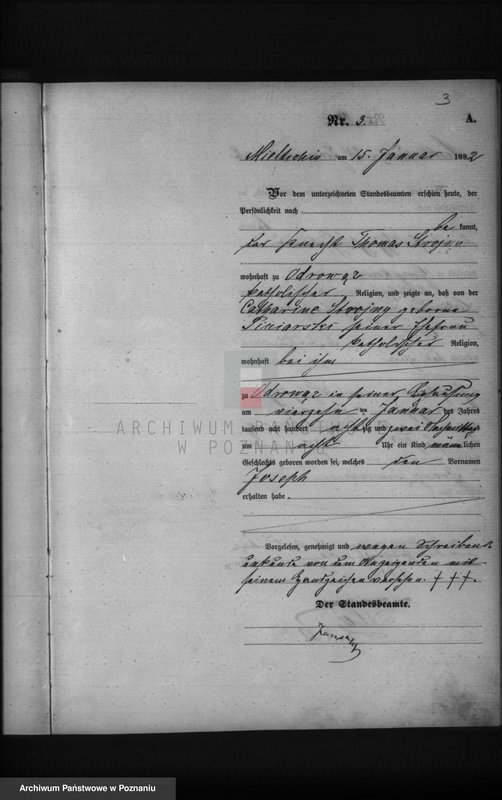 3
Nr. 3. A.
Mieltschin am 15. Januar 1882
Vor dem unterzeichneten Standesbeamten erschien heute, der
Persönlichkeit nach
be kannt,
der Knecht Thomas Strojny
wohnhaft zu Odrowąz
katholischer Religion, und zeigte an, daß von der
Catharine Strojny geborene
Piniarski seiner Ehefrau
katholischer Religion,
wohnhaft bei ihm
zu Odrowąz in seiner Behausung
am vierzehn ten Januar des Jahres
tausend acht hundert achtzig und zwei Nachmittags
um acht Uhr ein Kind männlichen
Geschlechts geboren worden sei, welches den Vornamen
Joseph
erhalten habe.
Vorgelesen, genehmigt und wegen Schreibens
unkunde von dem Anzeigenden mit
seinem Handzeichen versehen. +++.
Der Standesbeamte.
ARCHIWUM
W POZNANIU
Archiwum Państwowe w Poznaniu